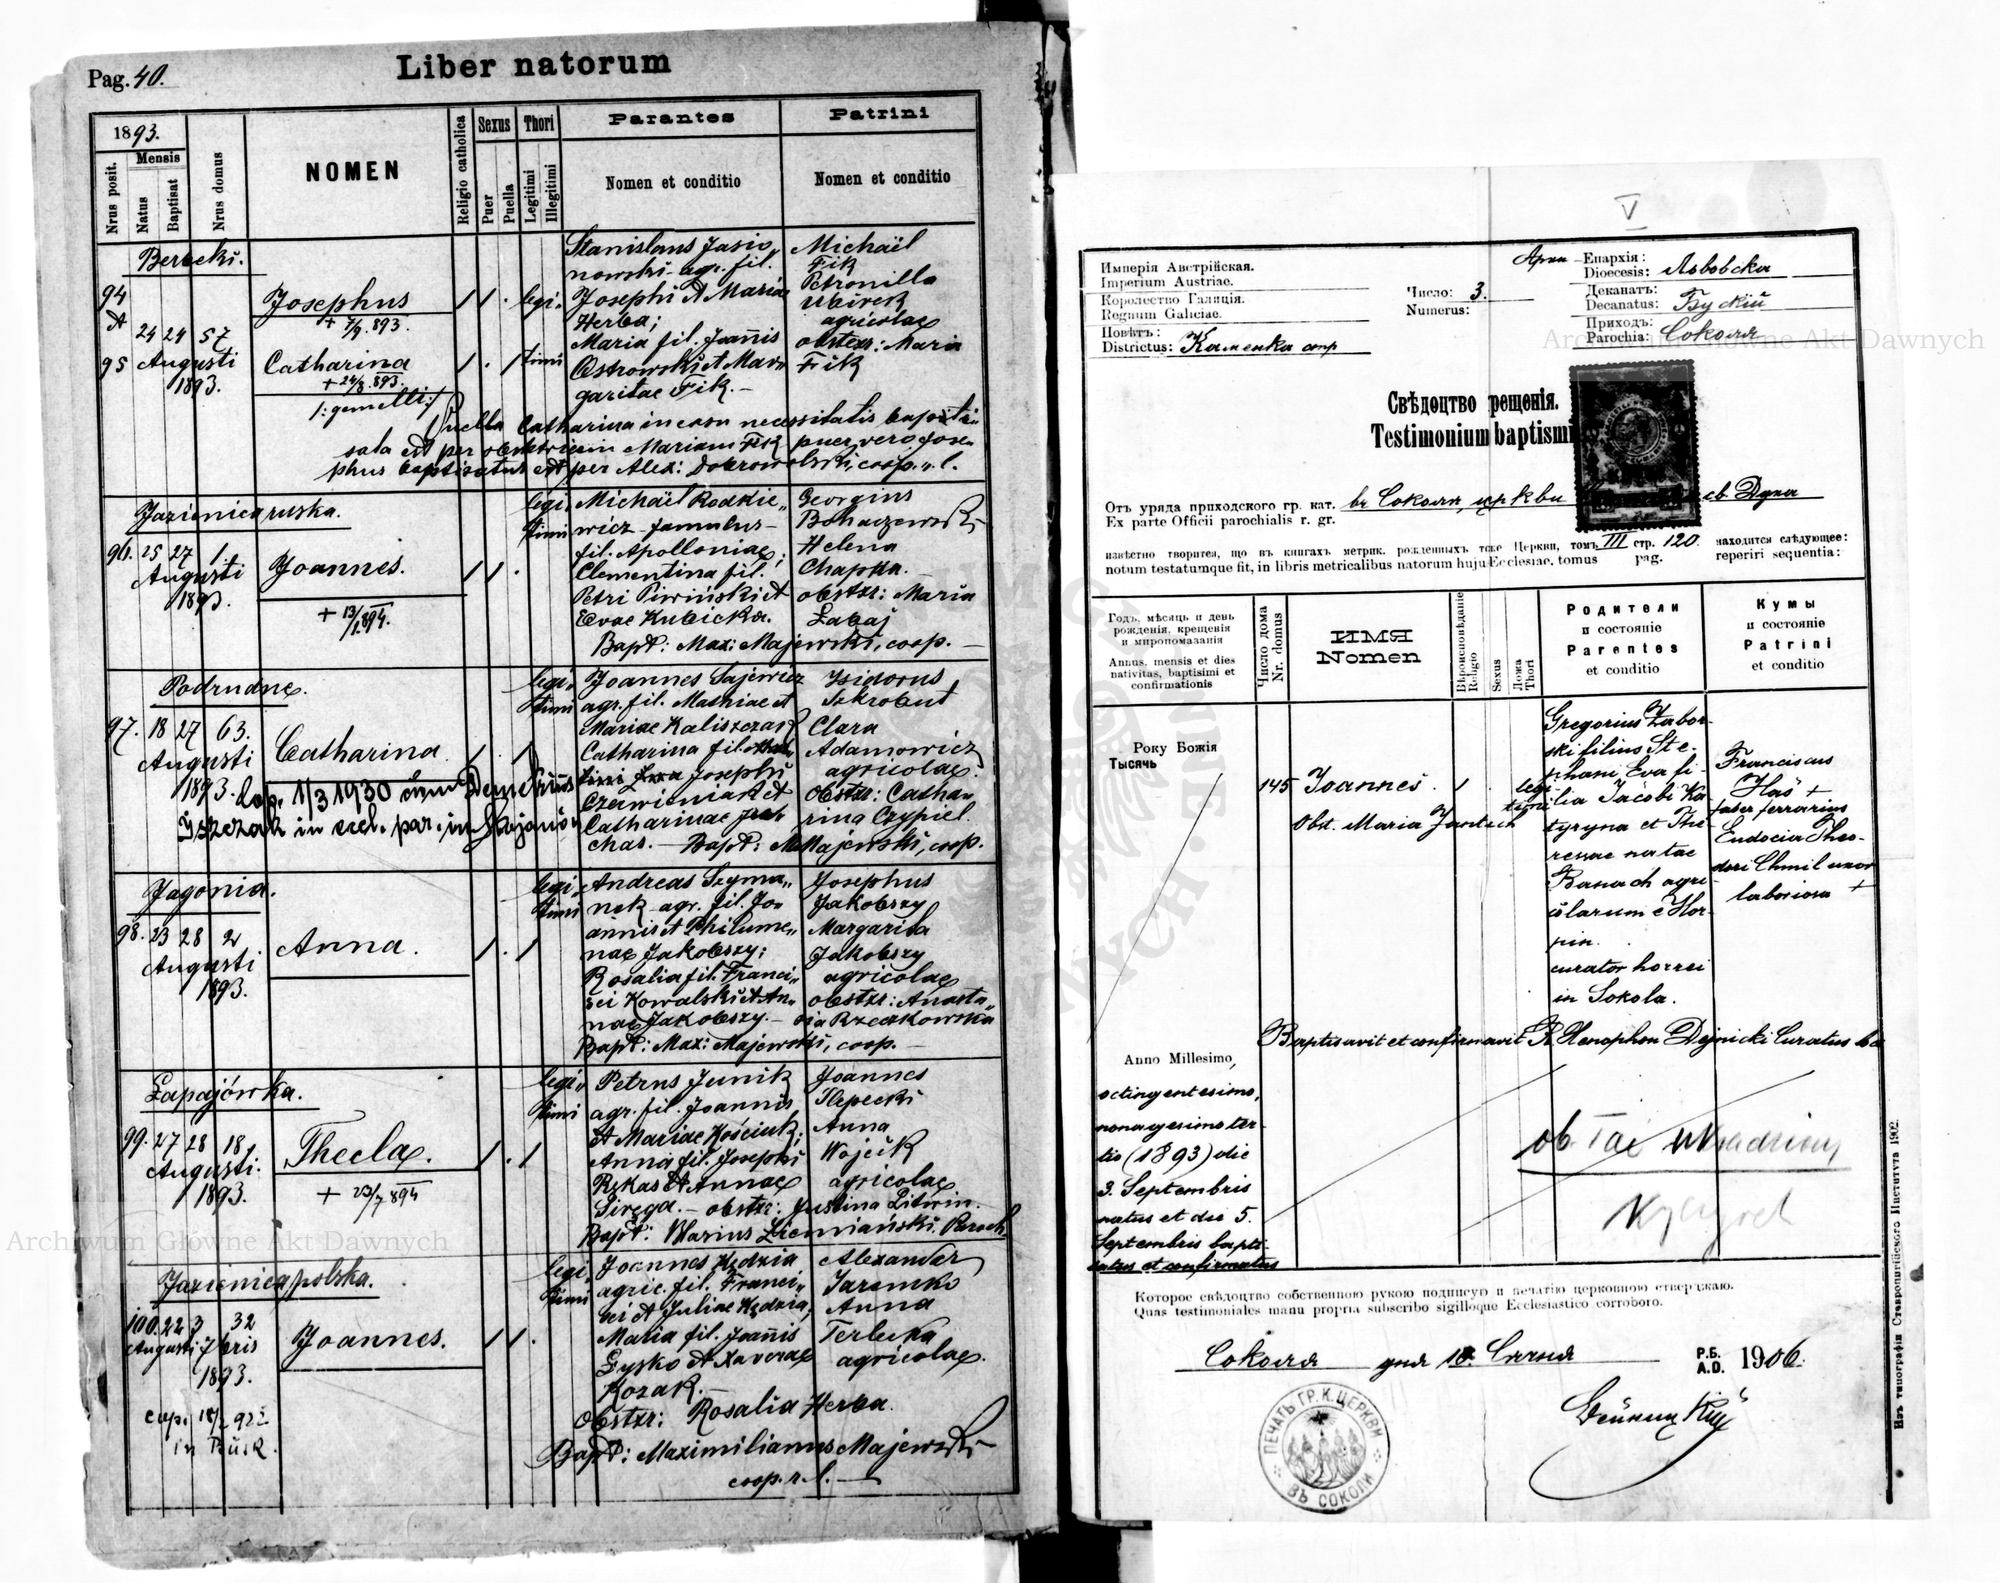 Pag. 40.
Liber natorum
1893.
Nrus posit.
Mensis
Natus
Baptisat
Nrus domus
NOMEN
Religio catholica
Sexus
Puer
Puella
Thori
Legitimi
Illegitimi
Parantes
Nomen et conditio
Patrini
Nomen et conditio
94
et
95
24 24 57
Augusti
1893.
Josephus
+ 7/9 893.
Catharina
+ 24/8 893.
/:gemelli:/
legi
timi
Stanislaus Jasio„
nowski agr. fil.
Josephi et Maria
Herba;
Maria fil. Joańis
Ostrowski et Mar„
garitae Fik. –
Michaël
Fik
Petronilla
agricolae
obstxr: Maria
Fik
Puella Catharina in casu necessitatis bapti„
sata est per obstetricem Mariam Fik puer vero Jose„
phus baptisatus est per Alex: Dobrowolski, coop. r. l.
Jazienica ruska.
96. 25 27 1.
Augusti
1893.
Joannes.
+ 13/1 894.
legi„
timi
Michaël Rodkie„
wicz famulus
fil. Apolloniae;
Clementina fil.
Petri Piwiński et
Evae Kubicka.
Georgius
Bohaczewski
Helena
Chapka.
obstxr: Maria
Łabaj
Bapt: Max: Majewski, coop. –
Podrudne.
97. 18 27 63.
Augusti
1893.
Catharina
cop. 1/3 1930 cum Demetrius
in eccl. par. in Stojanów
legi„
timi
Joannes Sajewicz
agr. fil. Mathiae et
Mariae Kaliszczak
Catharina fil.
Josephi
Czerwieniak et
Catharinae
chas. – Bapt: M. Majewski, coop.
Isidorus
Szkrobut
Clara
Adamowicz
agricolae.
obstxr: Catha„
rina Czypiel.
Jagonia.
98. 23 28 2
Augusti
1893.
Anna.
legi„
timi
Andreas Szyma„
nek agr. fil. Jo„
annis et Philume„
nae Jakobszy;
Rosalia fil. Franci„
sci Kowalski et An„
nae Jakobszy. –
Josephus
Jakobszy
Margarita
Jakobszy
agricolae
obstxr: Anasta„
sia Rzeczkowska
Bapt: Max: Majewski, coop. –
Łapajówka.
99. 27 28 18
Augusti.
1893.
Thecla.
+ 23/7 894
legi„
timi
Petrus Junik
agr. fil. Joannis
et Mariae Kościuk;
Anna fil. Josephi
Rękas et Annae
Joannes
Ślepecki
Anna
Wojcik
agricolae
Sirega. – obstxr: Justina Litwin.
Bapt: Marius Ziemiański. Paroch
Jazienica polska.
100. 22 3 32
Augusti 7bris
1893.
Joannes.
in Busk.
legi„
timi
Joannes Kędzia
agric. fil. Franci„
sci et Juliae Kędzia;
Maria fil. Joańis
Łysko et Xaverae
Kozak. –
Alexander
Jaremko
Anna
Terlecka
agricolae.
Obstxr: Rosalia Herba.
Bapt: Maximilianus Majewski
coop. r. l. –
V
Имперія Австрійская.
Imperium Austriae.
Королество Галиція.
Regnum Galiciae.
Повѣтъ:
Districtus: Каменка стр
Число:
Numerus: 3.
Архи-Епархія:
Dioecesis: Львовска
Деканатъ:
Decanatus: Бускій
Приходъ:
Parochia: Соколя
Свѣдоцтво рещенія.
Testimonium baptismi
Отъ уряда приходского гр. кат. въ Соколи, церкви св Духа
Ex parte Officii parochialis r. gr.
извѣстно творится, що въ книгахъ метрик. рожденныхъ тоже Церкви, томъ III стр. 120. находится слѣдующее:
notum testatumque fit, in libris metricalibus natorum hujus Ecclesiae, tomus pag. reperiri sequentia:
Годъ, мѣсяцъ и день
рожденія, крещенія
и миропомазанія
Annus, mensis et dies
nativitas, baptisimi et
confirmationis
Число дома
Nr. domus
ИМЯ
Nomen
Вѣроисповѣданіе
Religio
Sexus
Ложа
Thori
Родители
и состояніе
Parentes
et conditio
Кумы
и состояніе
Patrini
et conditio
Року Божія
Тысячъ
145 Joannes
Obst. Maria Jantsch
legi
timi
Gregorius Zabor-
ski filius Ste-
phani, Eva fi-
lia Jacobi Ka
tyryna et The-
resiae natae
Banach agri-
colarum e Hor-
pin.
curator horrei
in Sokola.
Franciscus
Haś +
faber ferrarius
Eudocia Theo-
dori Chmil uxor
laboriosa +
Baptisavit et confirmavit R. Xenophon Dejnicki Curatus loci
Anno Millesimo,
octingentesimo,
nonagesimo ter-
tio (1893) die
3. Septembris
natus et die 5.
Septembris bapti-
satus et confirmatus
Которое свѣдоцтво собственною рукою подписую и печатію церковною стверджаю.
Quas testimoniales manu propria subscribo sigilloque Ecclesiastico corroboro.
Соколя дня 18. Січня Р.Б. A.D. 1906.
ПЕЧАТЬ ГР. К. ЦЕРКВИ
ВЪ СОКОЛИ
Изъ типографіи Ставропигійского Института 1902.
Archiwum Główne Akt Dawnych
Archiwum Główne Akt Dawnych